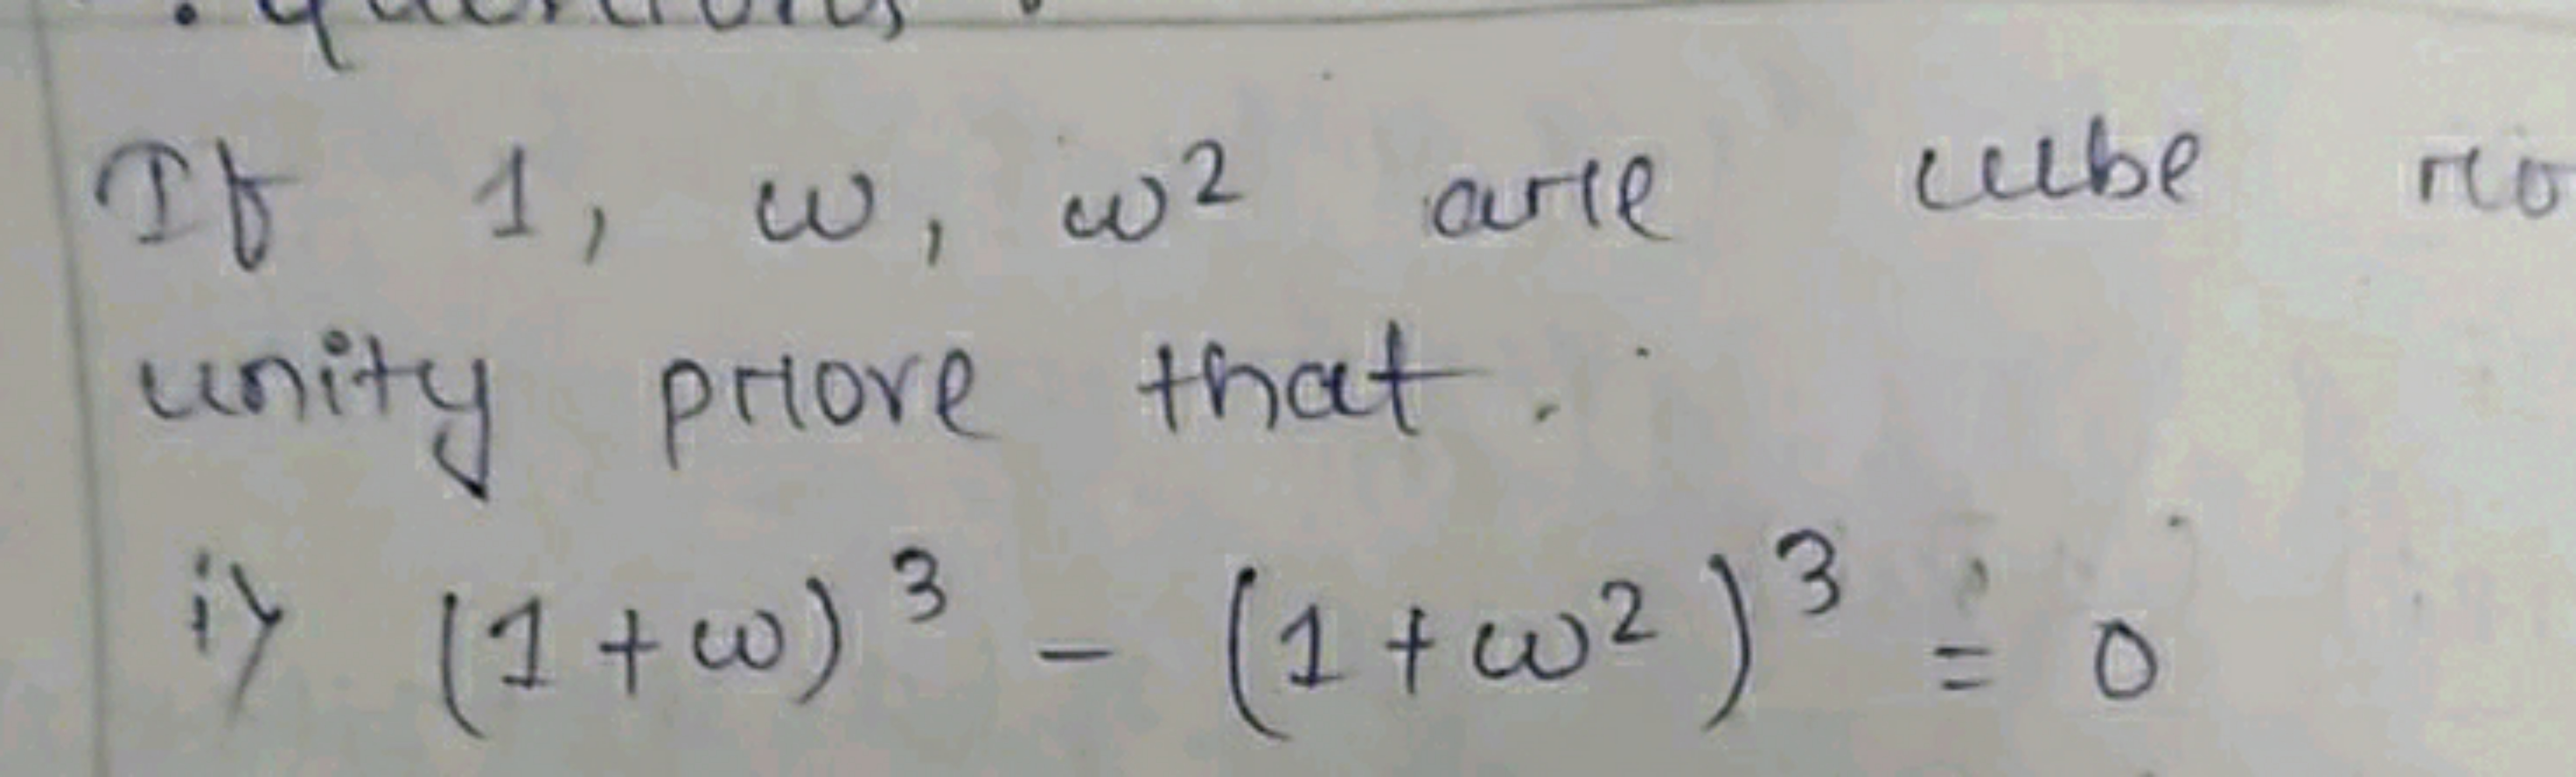 If 1, ω, ω² are cube
unity prove that.
i) (1+ω)³ - (1+ω²)³ = 0